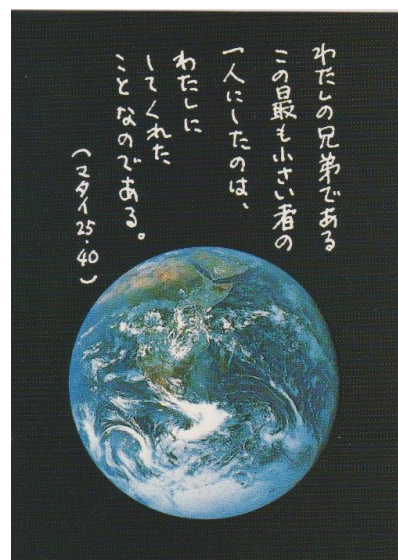 わたしの兄弟である
この最も小さい者の
一人にしたのは、
わたしに
してくれた
ことなのである。
(マタイ25・40)